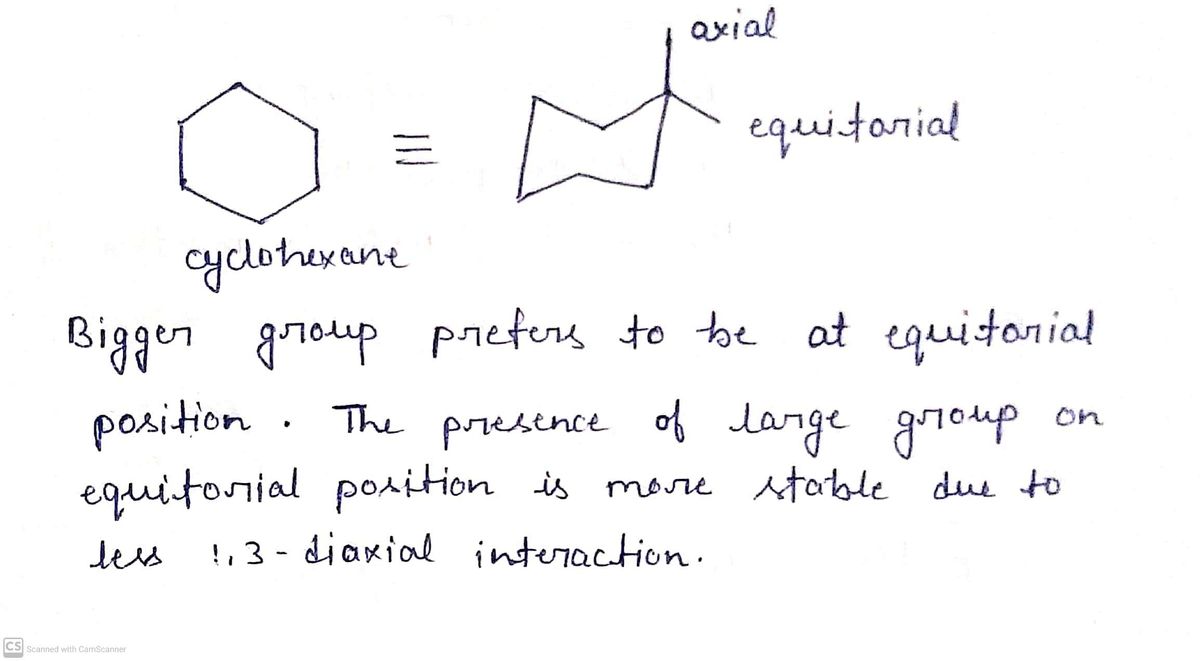 axial
equitorial
≡
cyclohexane
Bigger group prefers to be at equitorial
position. The presence of large group on
equitorial position is more stable due to
less 1,3-diaxial interaction.
CS Scanned with CamScanner